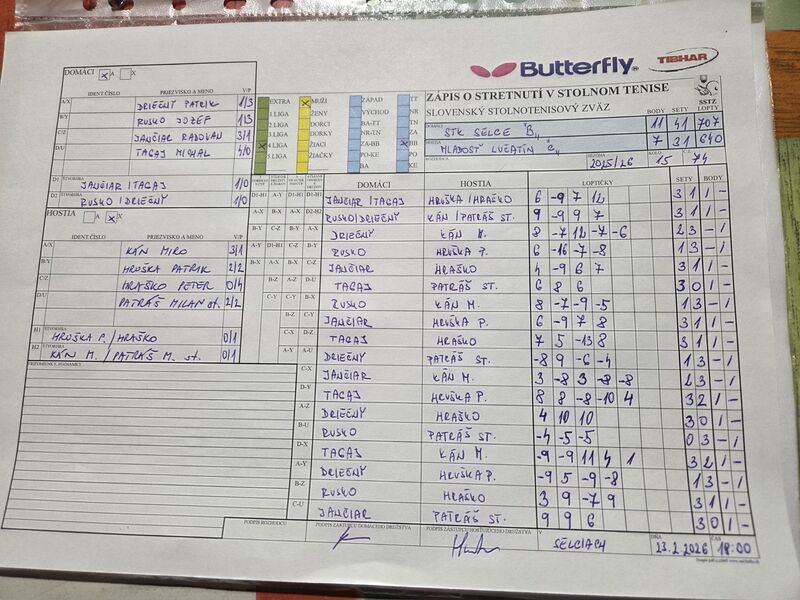 Butterfly
TIBHAR
DOMÁCI X A X
IDENT.ČÍSLO PRIEZVISKO A MENO V/P
A/X DRIEČNÝ PATRIK 1/3
B/Y RUSKO JOZEF 1/3
C/Z JANČIAR RADOVAN 3/1
D/U TAGAJ MICHAL 4/0
D1 ŠTVORHRA JANČIAR/TAGAJ 1/0
D2 RUSKO/DRIEČNÝ 1/0
HOSTIA A X X
IDENT.ČÍSLO PRIEZVISKO A MENO V/P
A/X KÁN MIRO 3/1
B/Y HRUŠKA PATRIK 2/2
C/Z HRAŠKO PETER 0/4
D/U PATRÁŠ MILAN st. 2/2
H1 ŠTVORHRA HRUŠKA P./HRAŠKO 0/1
H2 KÁN M./PATRÁŠ M. st. 0/1
PRIPOMIENKY, POZNÁMKY
EXTRA X MUŽI ZÁPAD TT
1.LIGA ŽENY VÝCHOD NR
2.LIGA DORCI BA-TT TN
3.LIGA DORKY NR-TN ZA
X 4.LIGA ŽIACI ZA-BB X BB
5.LIGA ŽIAČKY PO-KE PO
BA KE
ZÁPIS O STRETNUTÍ V STOLNOM TENISE
SLOVENSKÝ STOLNOTENISOVÝ ZVÄZ
SSTZ
BODY SETY LOPTY
DOMÁCI STK SELCE "B" 11 41 707
HOSTIA MLADOSŤ LUČATÍN "C" 7 31 640
SEZÓNA 2025/26 KOLO 15 Č. 74
DOMÁCI HOSTIA LOPTIČKY SETY BODY
JANČIAR/TAGAJ HRUŠKA/HRAŠKO 6 -9 7 12 3 1 1 -
RUSKO/DRIEČNÝ KÁN/PATRÁŠ ST. 9 -9 9 7 3 1 1 -
DRIEČNÝ KÁN M. 8 -7 12 -7 -6 2 3 - 1
RUSKO HRUŠKA P. 6 -16 -7 -8 1 3 - 1
JANČIAR HRAŠKO 4 -9 6 7 3 1 1 -
TAGAJ PATRÁŠ ST. 6 8 6 3 0 1 -
RUSKO KÁN M. 8 -7 -9 -5 1 3 - 1
JANČIAR HRUŠKA P. 6 -9 7 8 3 1 1 -
TAGAJ HRAŠKO 7 5 -13 8 3 1 1 -
DRIEČNÝ PATRÁŠ ST. -8 9 -6 -4 1 3 - 1
C-X JANČIAR KÁN M. 3 -8 3 -8 -8 2 3 - 1
D-Y TAGAJ HRUŠKA P. 8 8 -8 -10 4 3 2 1 -
A-Z DRIEČNÝ HRAŠKO 4 10 10 3 0 1 -
B-U RUSKO PATRÁŠ ST. -4 -5 -5 0 3 - 1
D-X TAGAJ KÁN M. -9 -9 11 4 1 3 2 1 -
A-Y DRIEČNÝ HRUŠKA P. -9 5 -9 -8 1 3 - 1
B-Z RUSKO HRAŠKO 3 9 -7 9 3 1 1 -
C-U JANČIAR PATRÁŠ ST. 9 9 6 3 0 1 -
PODPIS ROZHODCU PODPIS ZÁSTUPCU DOMÁCEHO DRUŽSTVA PODPIS ZÁSTUPCU HOSŤUJÚCEHO DRUŽSTVA V SELCIACH DŇA 23.2.2026 ČAS 18:00